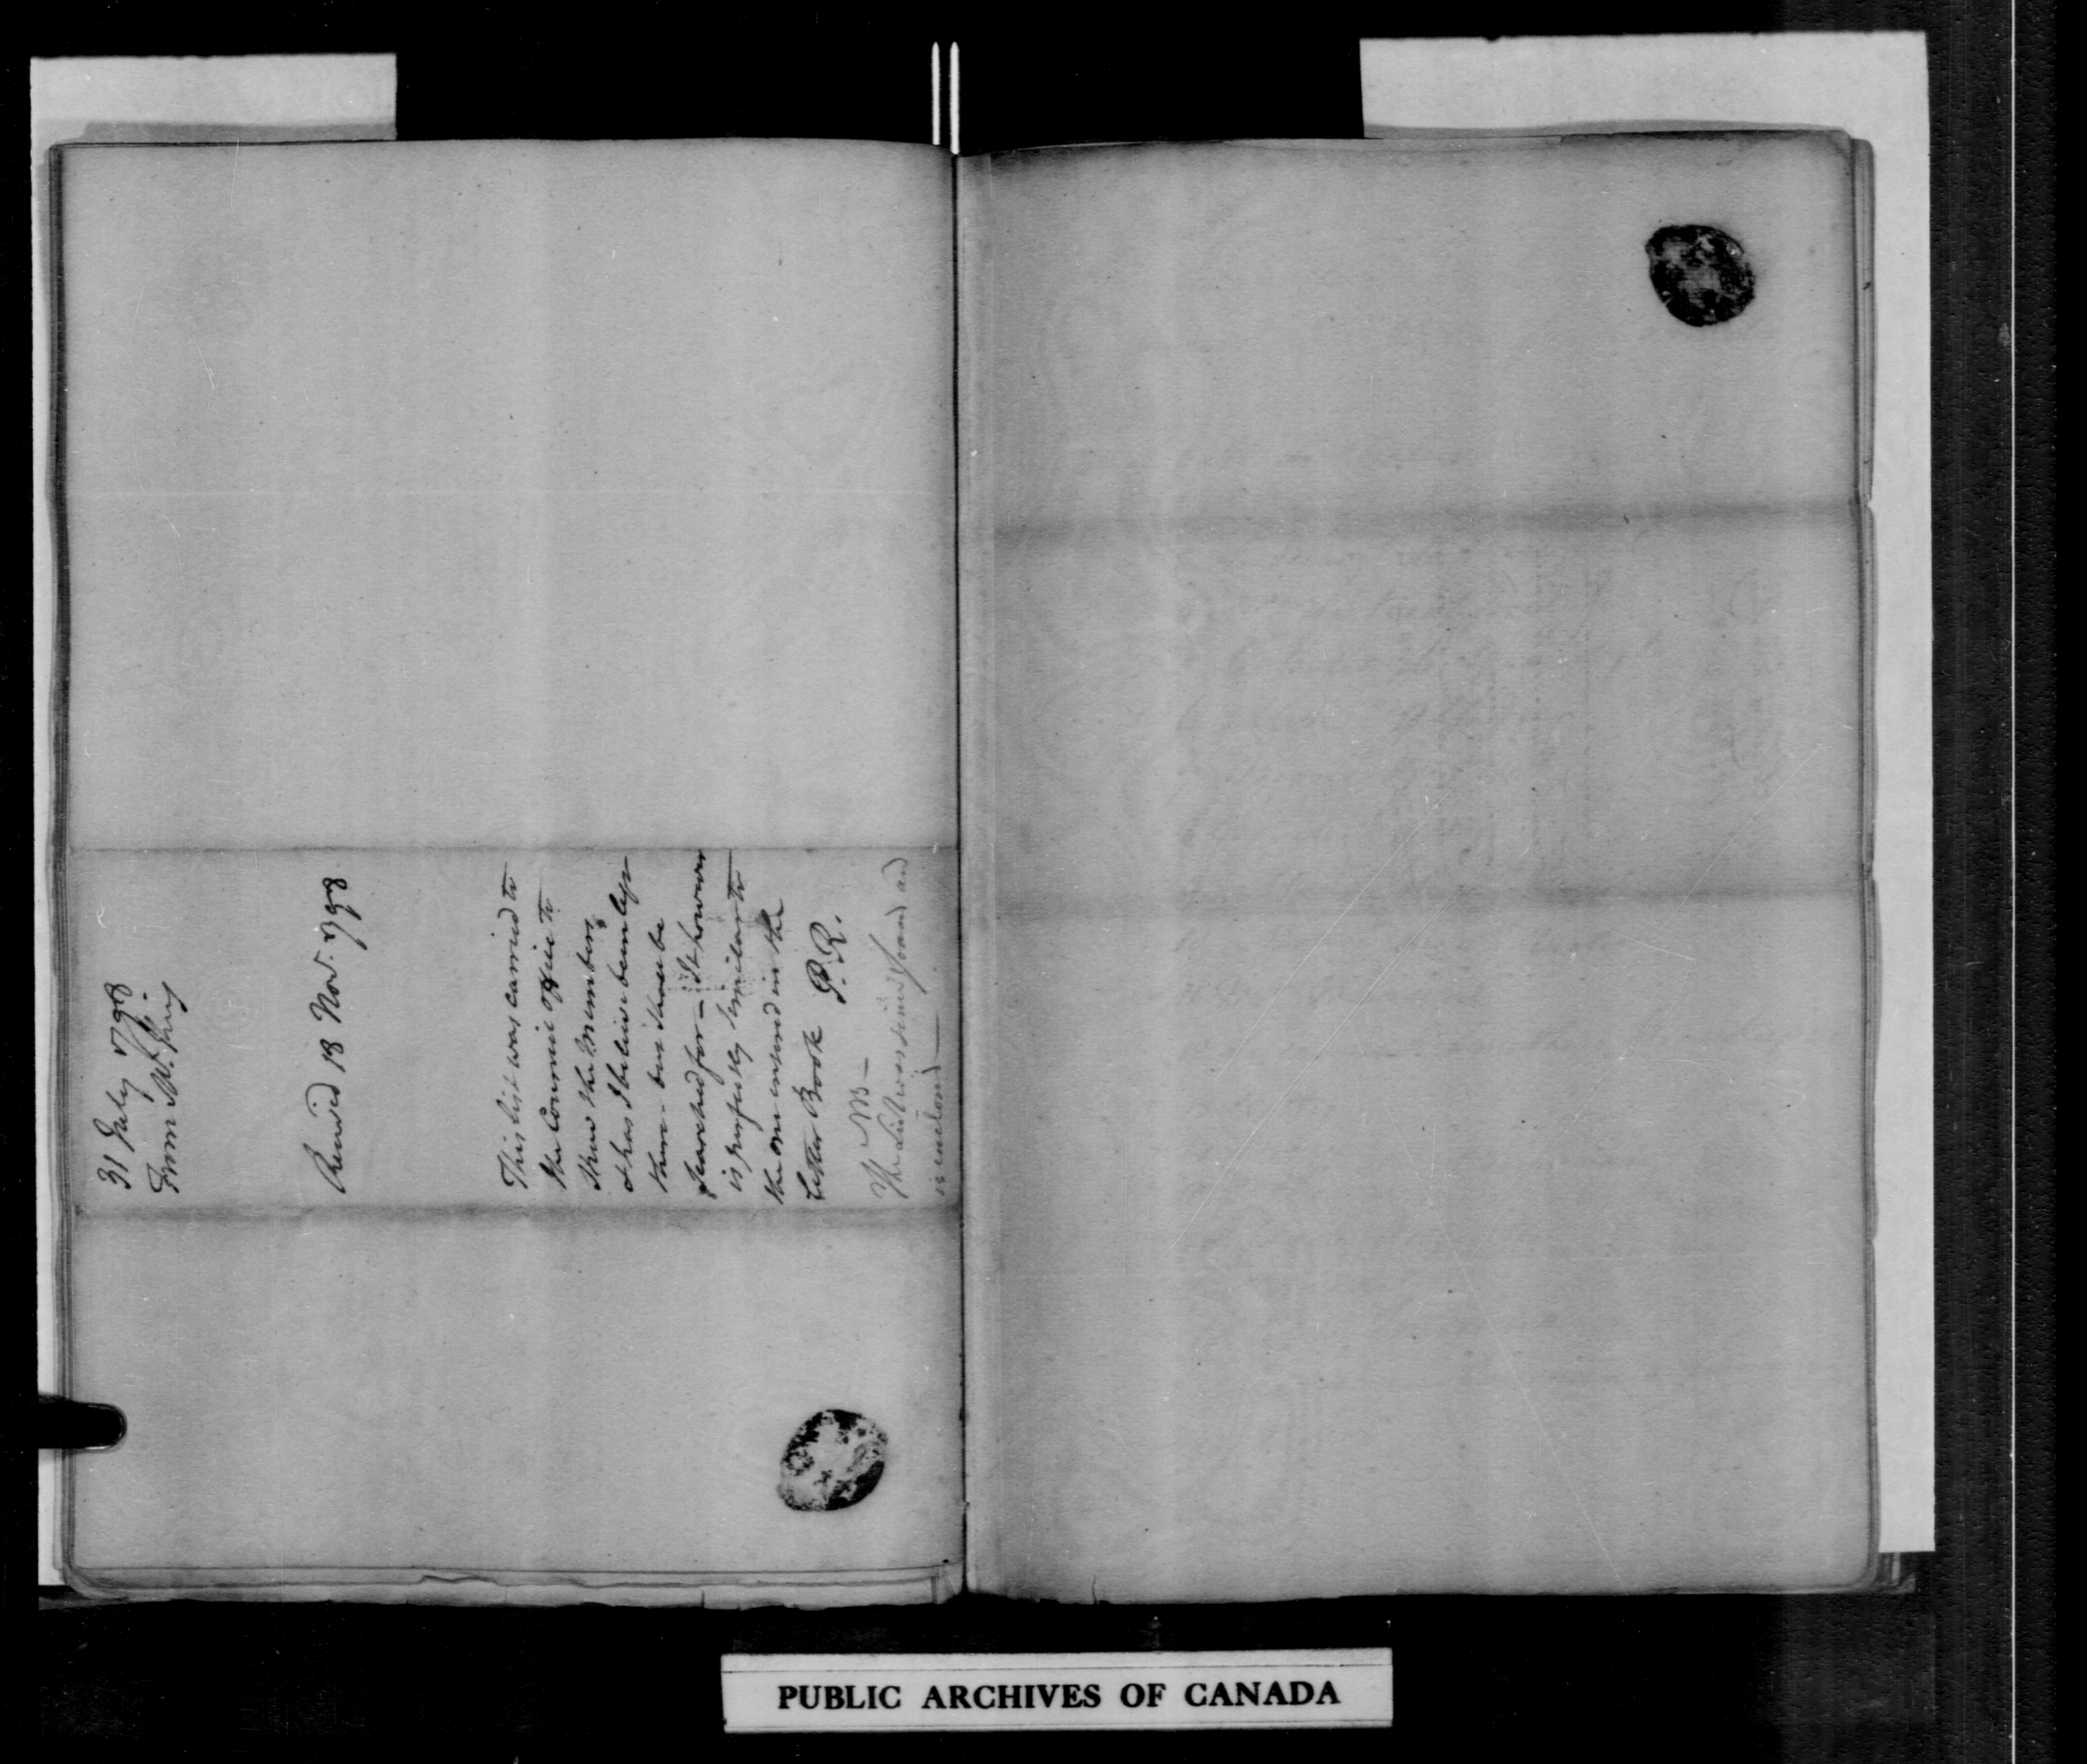 31 July 1798
From W. King
Received 18 Nov. 1798
This list was carried to
the Council Office to
shew the Members
& has I believe been left
there - but shall be
searched for - It however
is perfectly similar to
the one entered in the
Letter Book P.R.
NB -
The List was since found and
is enclosed -
PUBLIC ARCHIVES OF CANADA